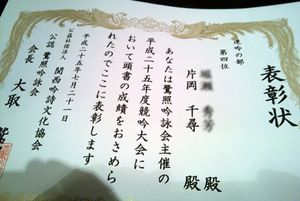 表彰状
吟の部
第四位
片岡 千尋 殿
殿
あなたは鷺照吟詠会主催の
平成二十五年度競吟大会に
おいて頭書の成績をおさめら
れたのでここに表彰します
平成二十五年七月二十一日
公益社団法人 関西吟詩文化協会
公認 鷺照吟詠会
会長 大取 鷺